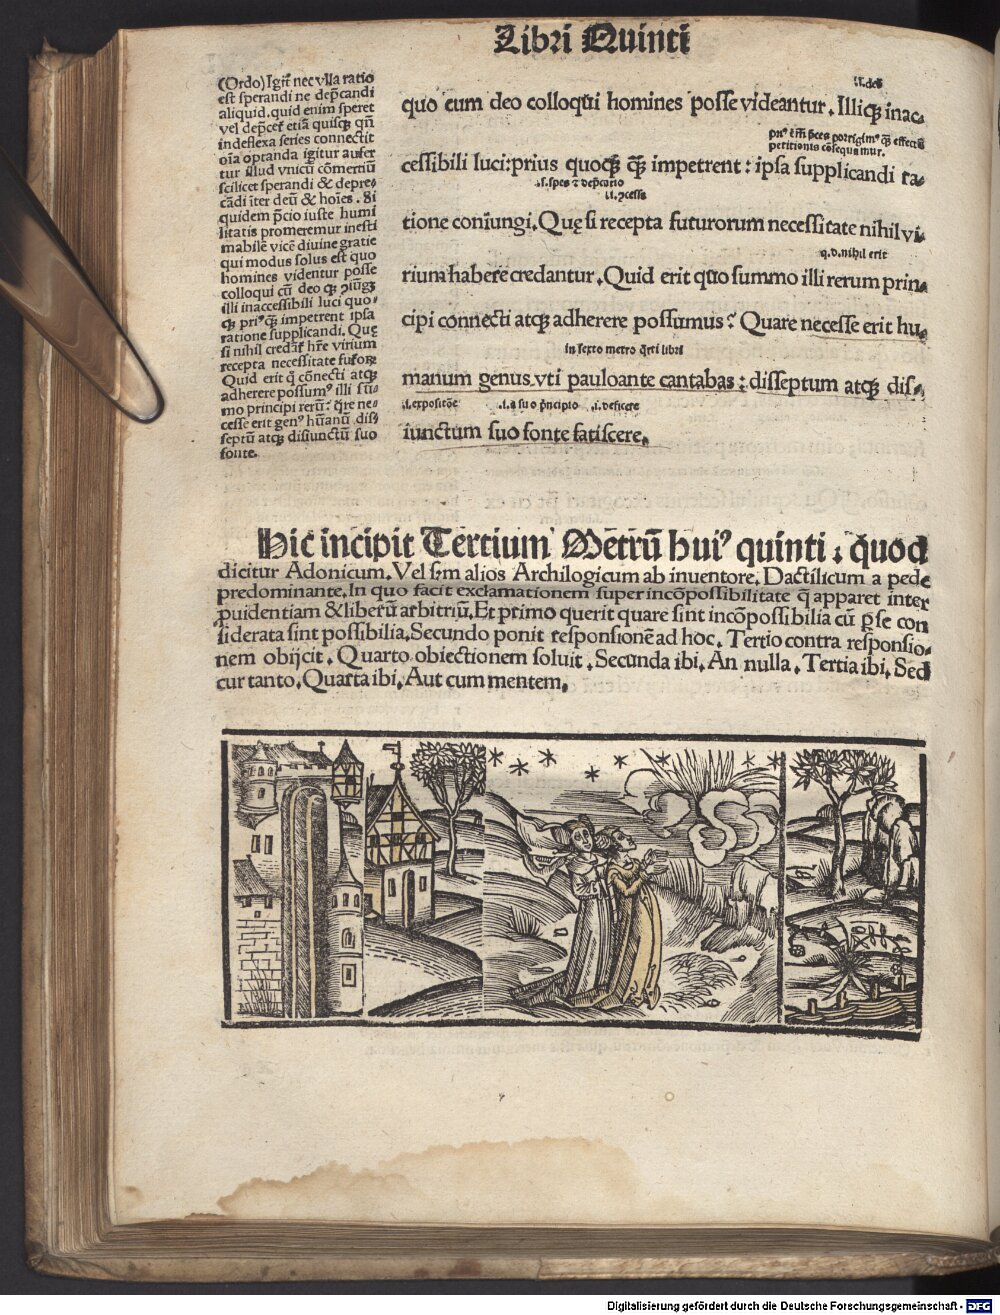 Libri Quinti
(Ordo) Igit̃ nec vlla ratio
est sperandi ne dep̃candi
aliquid. quid enim speret
vel dep̃cet̃ etiã quisqꝫ qñ
indeflexa series connectit
oĩa optanda igitur aufer
tur illud vnicũ cõmertiũ
scilicet sperandi & depre⸗
cãdi ĩter deũ & hoĩes. Si
quidem p̃cio iuste humi
litatis promeremur inesti
mabilẽ vicẽ diuine gratie
qui modus solus est quo
homines videntur posse
colloqui cũ deo
illi inaccessibili luci quo⸗
qꝫ priꝰ q̃ꝫ impetrent ipsa
ratione supplicandi. Quę
si nihil credãt̃ hr̃e virium
recepta necessitate
Quid erit q̃ cõnecti atqꝫ
adherere possumꝰ illi sũ⸗
mo principi rerũ: q̃re ne⸗
cesse erit genꝰ hũanũ dis⸗
septũ atqꝫ disiunctũ suo
fonte.
.i.deo
quo cum deo colloqui homines posse videantur. Illiqꝫ inac⸗
priꝰ porrigimꝰ q̃ꝫ effectũ
petitionis cõsequamur.
cessibili luci: prius quoqꝫ q̃ꝫ impetrent: ipsa supplicandi ra⸗
.s.spes ⁊ dep̃catio
.i.ꝯcessa
tione coniungi. Quę si recepta futurorum necessitate nihil vi⸗
q.d.nihil erit
rium habere credantur. Quid erit quo summo illi rerum prin⸗
cipi connecti atqꝫ adherere possumus? Quare necesse erit hu⸗
in sexto metro q̃rti libri
manum genus. vti pauloante cantabas: disseptum atqꝫ dis⸗
.i.expositõe .i.a suo p̃ncipio .i.deficere
iunctum suo fonte fatiscere.
Hic incipit Tertium Metrũ huiꝰ quinti: quod
dicitur Adonicum. Vel s̃m alios Archilogicum ab inventore. Dactilicum a pede
predominante. In quo facit exclamationem super incõpossibilitate q̃ apparet inter
ꝓuidentiam & liberũ arbitriũ. Et primo querit quare sint incõpossibilia cũ ꝑ se con
siderata sint possibilia. Secundo ponit responsionẽ ad hoc. Tertio contra responsio⸗
nem obijcit. Quarto obiectionem soluit. Secunda ibi. An nulla. Tertia ibi. Sed
cur tanto. Quarta ibi. Aut cum mentem.
Digitalisierung gefördert durch die Deutsche Forschungsgemeinschaft - DFG